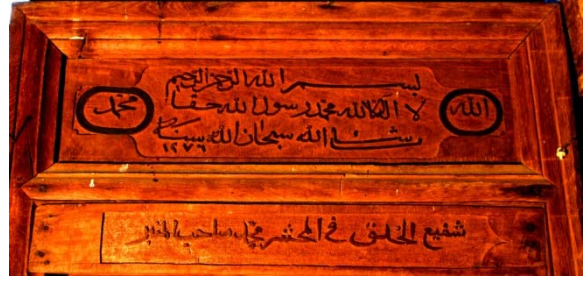 الله
بسم الله الرحمن الرحيم
لا اله الا الله محمد رسول الله حقا
الله سبحان الله سنة
١٢٧٩
محمد
شفيع الخلق في المحشر محمد صاحب المنبر